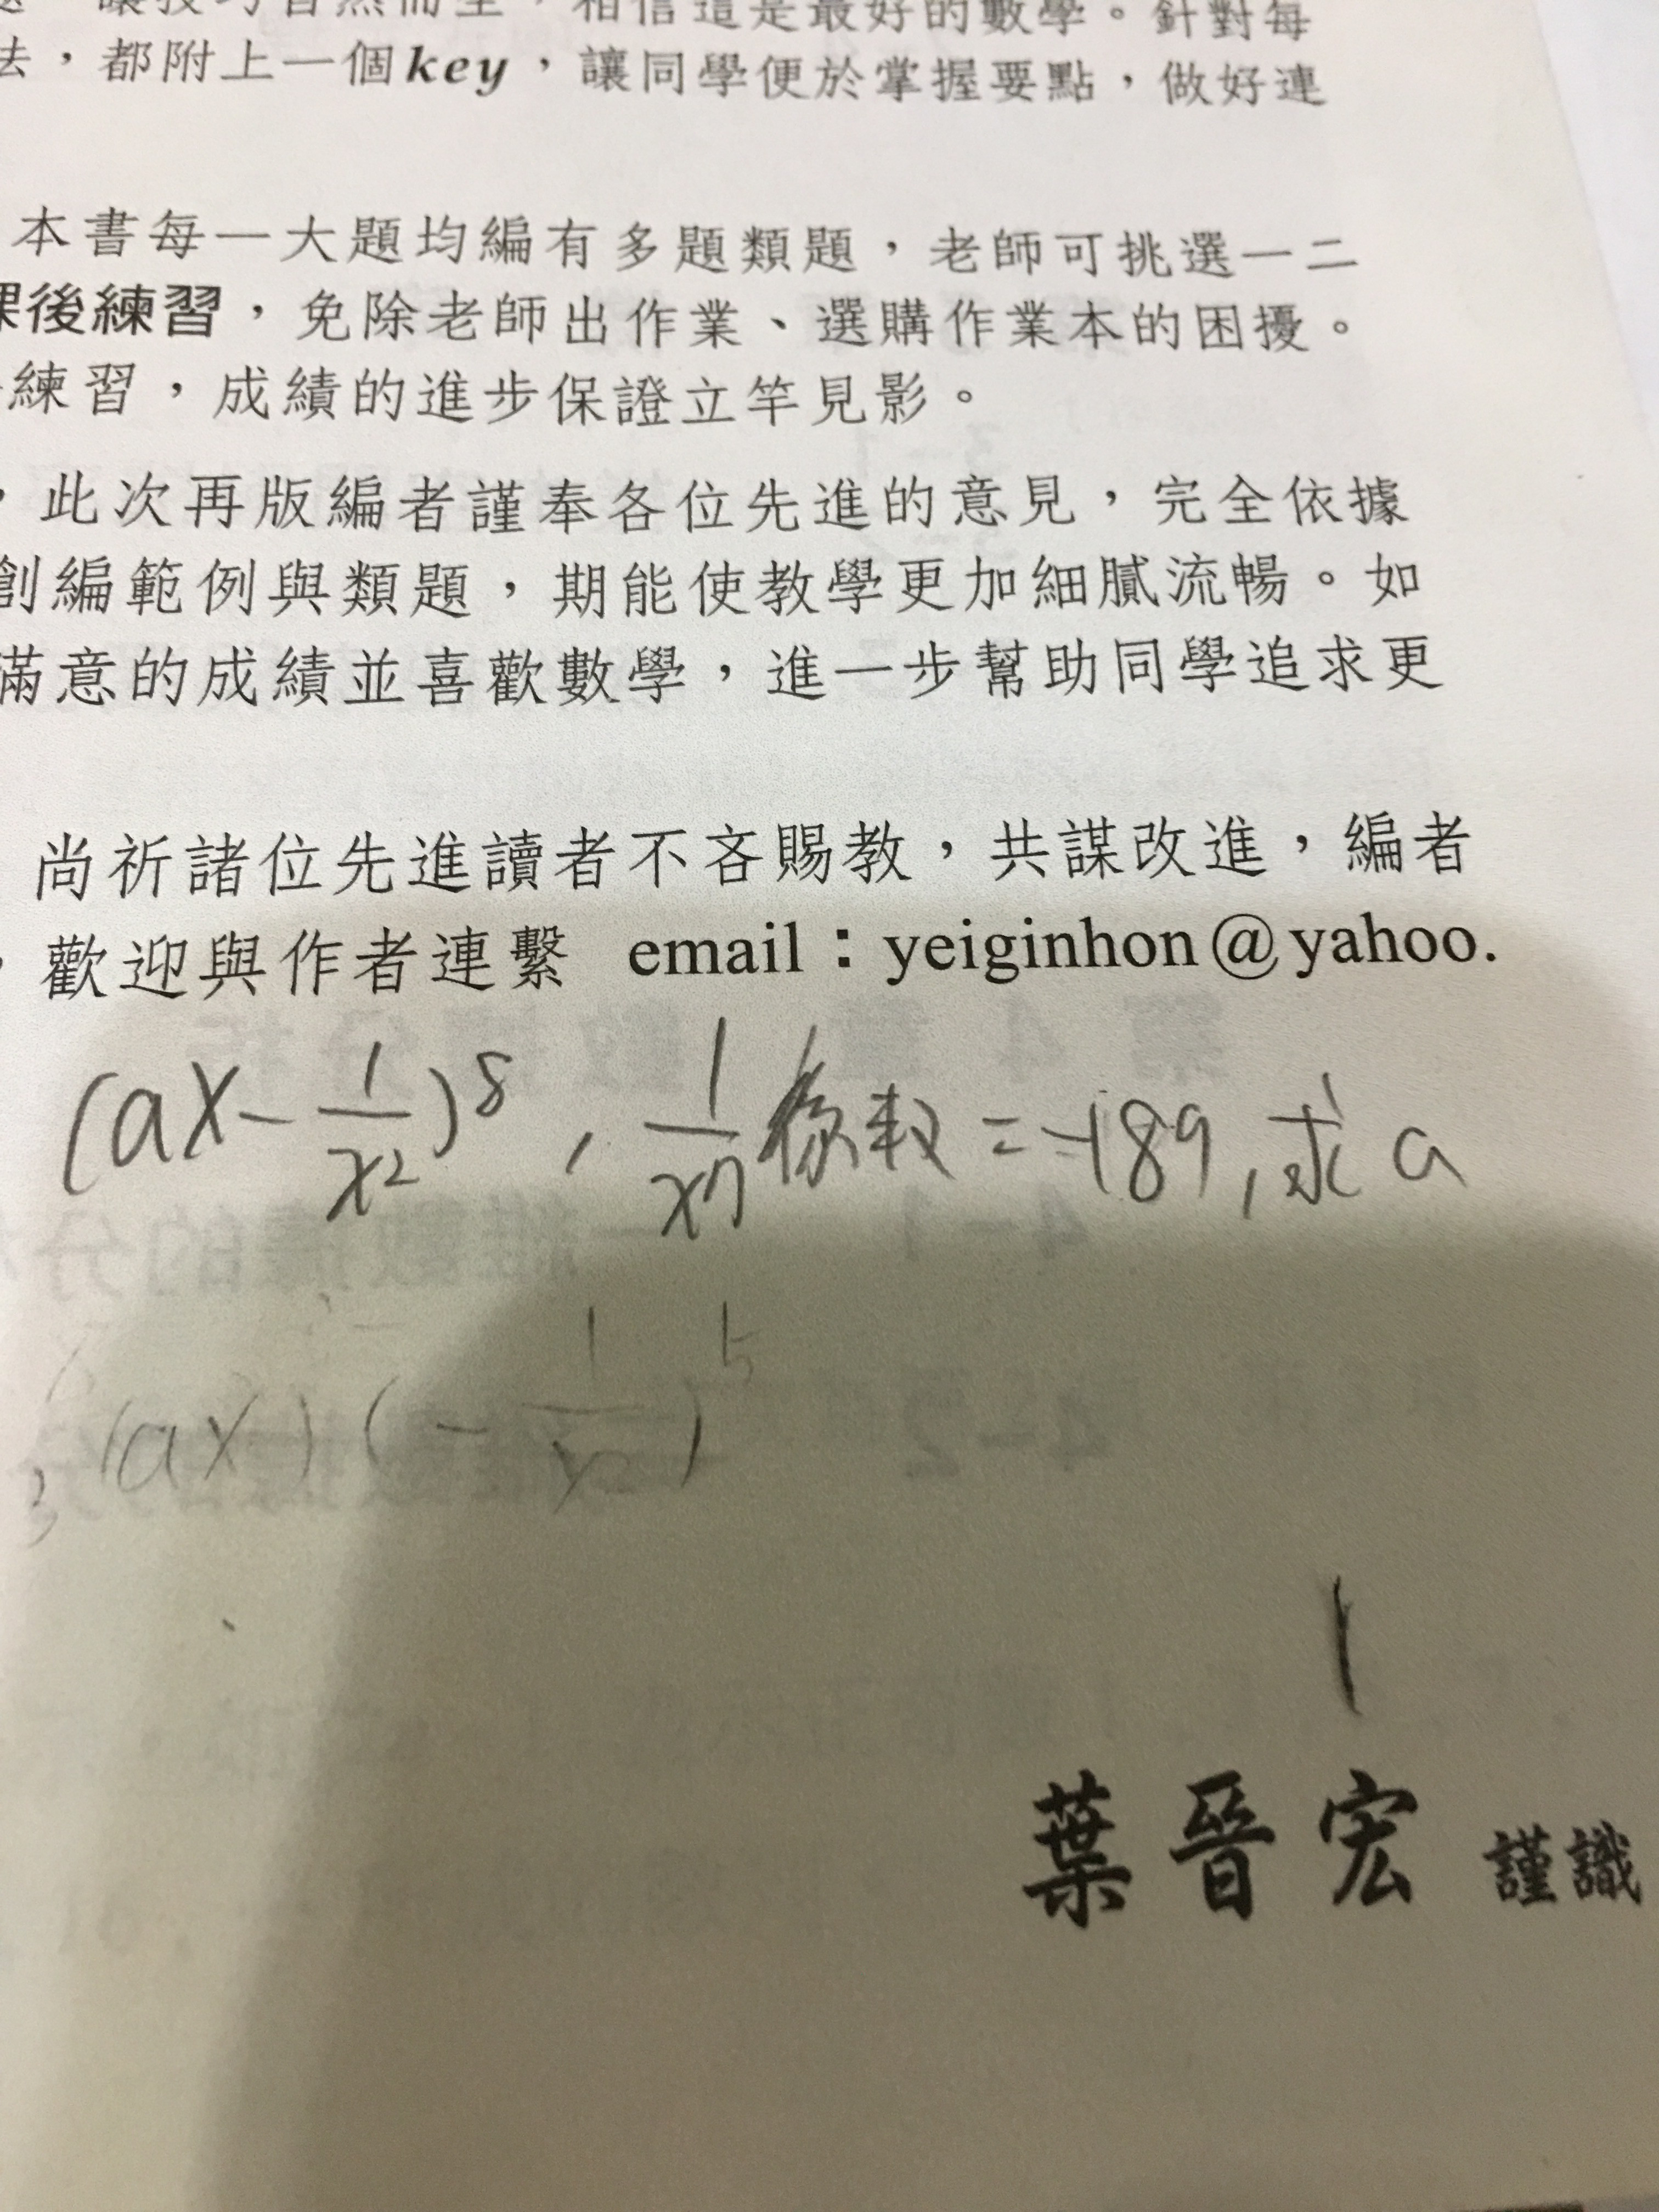 相信這是最好的數學。針對每
法，都附上一個key，讓同學便於掌握要點，做好連
本書每一大題均編有多題類題，老師可挑選一二
課後練習，免除老師出作業、選購作業本的困擾。
練習，成績的進步保證立竿見影。
，此次再版編者謹奉各位先進的意見，完全依據
創編範例與類題，期能使教學更加細膩流暢。如
滿意的成績並喜歡數學，進一步幫助同學追求更
尚祈諸位先進讀者不吝賜教，共謀改進，編者
，歡迎與作者連繫 email：yeiginhon@yahoo.
(ax-1/x²)⁸, 1/x⁷係数=-189,求a
(ax)(-1/x²)⁵
3
葉晉宏 謹識